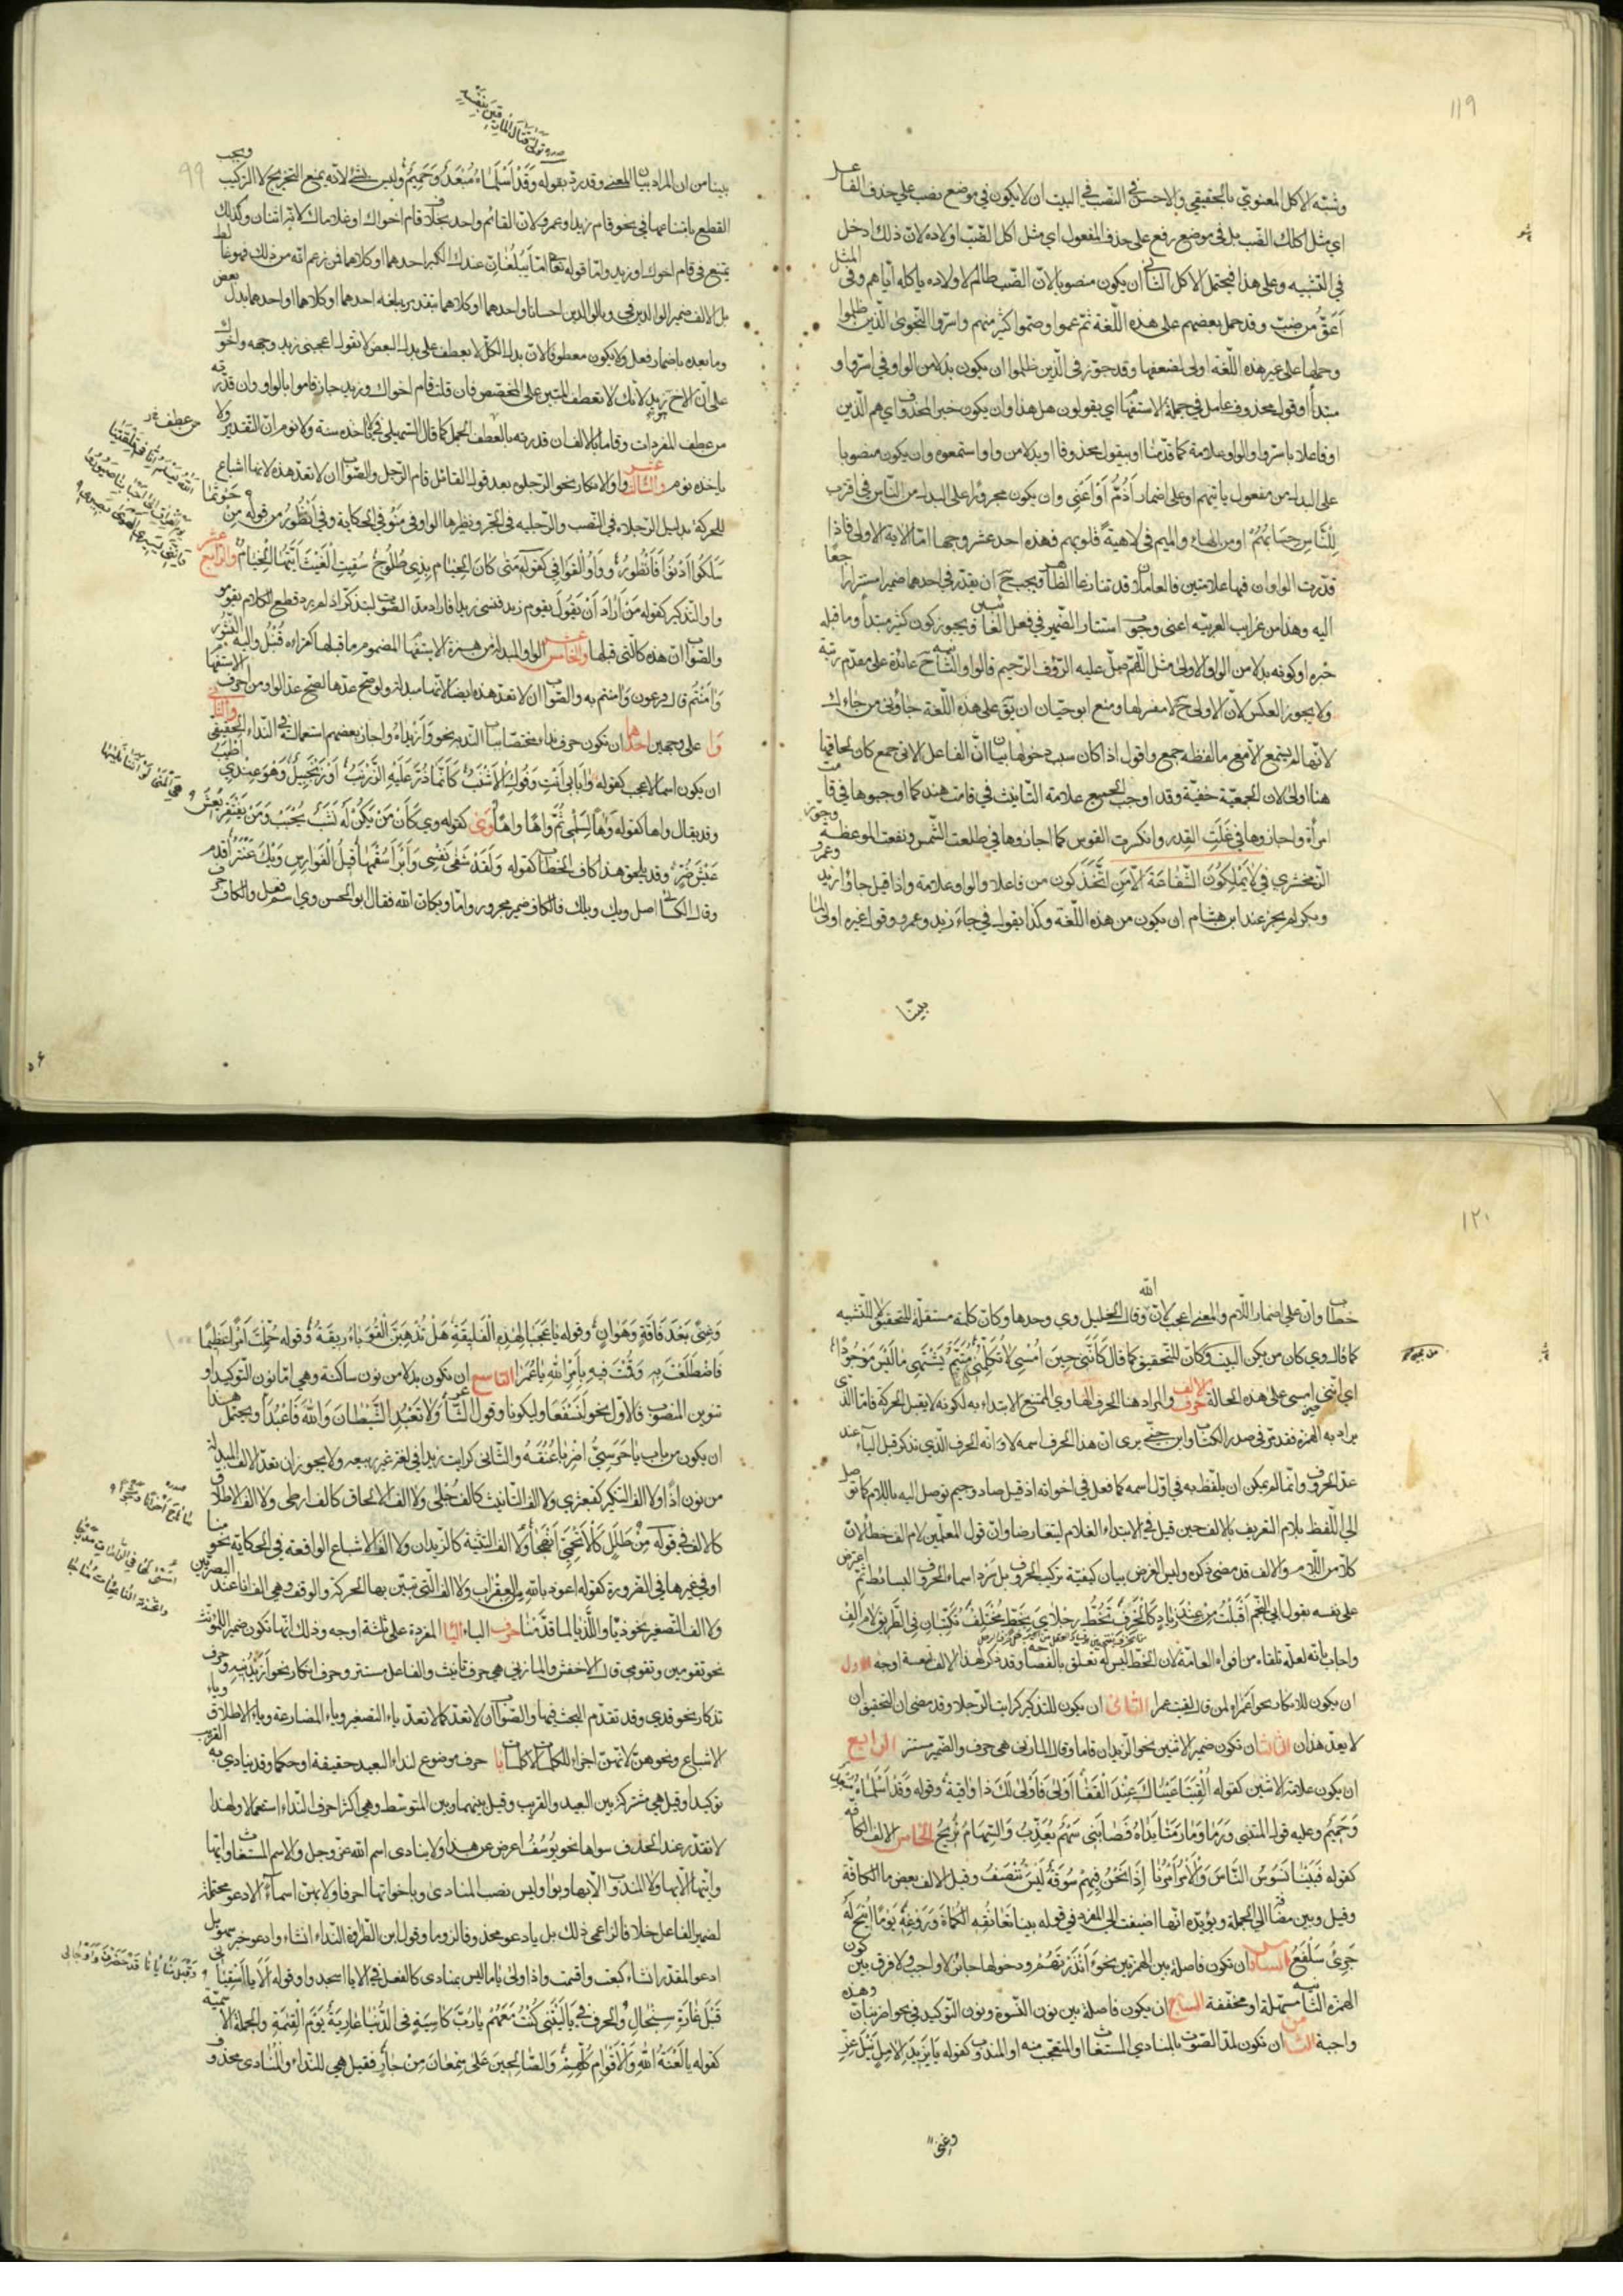 ١١٩
وشبّه الاكل المعنويّ بالحقيقي والاحسن في النصب في البيت ان لا يكون في موضع نصب على حذف الفاعل
اي مثل اكلك الضّب بل في موضع رفع على حذف المفعول اي مثل اكل الضّب اولاده لان ذلك ادخل
في التشبيه وعلى هذا فيحتمل الاكل الثاني ان يكون منصوبا لان الضّب ظالم لاولاده باكله اياهم وفي المثل
اعقّ من ضبّ وقد حمل بعضهم على هذه اللّغة ثم عموا وصمّوا كثير منهم واسرّوا النجوى الّذين ظلموا
وحملها على غير هذه اللّغة اولى لضعفها وقد جوّز في الّذين ظلموا ان يكون بدلا من الواو في اسرّوا او
مبتدأ او قولا محذوف عامل في جملة الاستفهام اي يقولون هل هذا وان يكون خبر المحذوف اي هم الّذين
او فاعلا باسرّوا والواو علامة كما قدّمنا او بيقول محذوفا او بدلا من واو استمعوه وان يكون منصوبا
على البدل من مفعول ياتيهم او على اضمار اذمّ او اعني وان يكون مجرورا على البدل من النّاس في اقترب
للنّاس حسابهم او من الهاء والميم في لاهية قلوبهم فهذه احد عشر وجها امّا الاية الاولى فاذا
قدّرت الواوان فيها علامتين فالعاملان قد تنازعا الظاهر ويجب ح ان يقدّر في احدهما ضميرا مستترا راجعا
اليه وهذا من غرايب العربيّة اعني وجوب استتار الضّمير في فعل الغائبين ويجوز كون كثير مبتدأ وما قبله
خبره او كونه بدلا من الواو الاولى مثل اللّهم صلّ عليه الرّؤف الرّحيم فالواو الثانية ح عائدة على متقدّم رتبة
ولا يجوز العكس لان الاولى ح لا مفسر لها ومنع ابو حيّان ان يقع على هذه اللّغة جاؤني من جاءك
لانّها لم يسمع الا مع ما لفظه جمع واقول اذا كان سبب دخولها بيان انّ الفاعل الاتي جمع كان لحاقها
هنا اولى لان الجمعيّة خفيّة وقد اوجب الجميع علامة التّانيث في قامت هند كما اوجبوها في قامت
امرأة واجازوها في غلت القدر وانكسرت القوس كما اجازوها في طلعت الشّمس ونفعت الموعظة وجوّز
الزمخشري في لا يملكون الشّفاعة الّا من اتّخذ كون من فاعلا والواو علامة واذا قيل جاؤا زيد وعمرو
وبكر لم يجز عند ابن هشام ان يكون من هذه اللّغة وكذا يقول في جاءا زيد وعمرو وقول غيره اولى لما
بيّنا
٩٩
بينا من ان المراد بيان المعنى وقد ردّ بقوله وقد اسلماه مبعد وحميم وليس بشئ لانّه يمنع التخريج لا التركيب ويجب
القطع بامتناعها في نحو قام زيد او عمرو لان القائم واحد بخلاف قام اخواك او غلاماك لانه اثنان وكذلك
يمتنع في قام اخوك او زيد وامّا قوله تعالى امّا يبلغان عندك الكبر احدهما او كلاهما فمن زعم انّه من ذلك فهو غالط
بل الالف ضمير الوالدين في وبالوالدين احسانا واحدهما او كلاهما بتقدير يبلغه احدهما او كلاهما او احدهما بدل بعض
وما بعده باضمار فعل ولا يكون معطوفا لان بدل الكلّ لا يعطف على بدل البعض لا تقول اعجبني زيد وجهه واخوك
على ان الاخ زيد لانك لا تعطف المبيّن على المخصّص فان قلت قام اخواك وزيد جاز قاموا بالواو وان قدّرته
من عطف المفردات وقاما بالالف ان قدّرته بالعطف الجمل كما قال السّهيلي في لا تاخذه سنة ولا نوم انّ التقدير ولا
ياخذه نوم والثالث عشر واو الانكار نحو الرّجلوه بعد قول القائل قام الرّجل والصّواب ان لا تعدّ هذه لانها اشباع
للحركة بدليل الرّجلاه في النّصب والرّجليه في الجرّ ونظيرها الواو في منو في الحكاية وفي انظور من قوله من حوثما
سلكوا ادنوا فانظور وواو القوافي كقوله متى كان الخيام بذي طلوح سقيت الغيث ايتها الخيام والرابع عشر
واو التذكير كقوله من اراد ان يقول يقوم زيد فنسي زيد فاراد مدّ الصّوت ليتذكّر اذ لم يرد قطع الكلام يقومو
والصّواب ان هذه كالتي قبلها والخامس عشر الواو المبدلة من همزة الاستفهام المضموم ما قبلها كقراءة قنبل واليه النشور
وامنتم قال فرعون وامنتم به والصّواب ان لا تعدّ هذه ايضا لانّها مبدلة ولو صحّ عدّها لصحّ عدّ الواو من احرف الاستفهام
وا على وجهين احدهما ان تكون حرف نداء مختصّا بباب النّدبة نحو وازيداه واجاز بعضهم استعماله في النّداء الحقيقيّ والثاني
ان يكون اسما لاعجب كقوله وا بابي انت وفوك الاشنب كانّما ذرّ عليه الزّرنب او زنجبيل وهو عندي اطيب
وقد يقال واها كقوله واها لسلمى ثمّ واها واها وي كقوله وي كان من يكن له نشب يحبب ومن يفتقر يعش
عيش ضرّ وقد يلحق هذا كاف الخطاب كقوله ولقد شفى نفسي وابرأ سقمها قيل الفوارس ويك عنتر اقدم
وقال الكسائي اصل ويك ويلك فالكاف ضمير مجرور وامّا ويكانّ الله فقال ابو الحسن وي اسم فعل والكاف حرف
١٢٠
خطاب وانّ على اضمار اللّام والمعنى اعجب لانّ الله وقال الخليل وي وحدها وكانّ كلمة مستقلّة للتحقيق لا للتشبيه
كما قال وي كان من يكن البيت وكانّ للتحقيق كما قال كانّني حين امسي لا تكلّمني متيّم يشتهي ما ليس موجودا
اي انّني حين امسي على هذه الحالة حرف الالف والمراد هنا الحرف الهاوي الممتنع الابتداء به لكونه لا يقبل الحركة فامّا الذي
يراد به الهمزة فقد مرّ في صدر الكتاب وابن جنّي يرى انّ هذا الحرف اسمه لا وانّه الحرف الّذي يذكر قبل الياء عند
عدّ الحروف وانّما لم يمكن ان يلفّظ به في اوّل اسمه كما فعل في اخواته اذ قيل صاد وجيم توصل اليه باللام كما توصل
الى اللّفظ بلام التعريف بالالف حين قيل في الابتداء الغلام ليتقارضا وانّ قول المعلّمين لام الف خطأ لان
كلا من اللّام والالف قد مضى ذكره وليس الغرض بيان كيفيّة تركيب الحروف بل سرد اسماء الحروف البسائط ثمّ اعترض
على نفسه بقول ابي النّجم اقبلت من عند زياد كالخرف تخطّ رجلاي بخطّ مختلف تكتّبان في الطّريق لام الف
واجاب بانّه لعلّه تلقاه من افواه العامّة لان الخطّ ليس له تعلّق بالفصاحة وقد ذكر لهذا الالف تسعة اوجه الاول
ان يكون للانكار نحو اعمراه لمن قال لقيت عمرا الثاني ان يكون للتذكير كرايت الرّجلا وقد مضى ان التحقيق ان
لا يعدّ هذان الثالث ان تكون ضمير الاثنين نحو الزّيدان قاما وقال المازني هي حرف والضّمير مستتر الرابع
ان يكون علامة الاثنين كقوله الفيتا عيناك عند القفا اولى فاولى لك ذا واقية وقوله وقد اسلماه مبعد
وحميم وعليه قول المتنبي ورمى وما رمتا يداه فصابني سهم يعذّب والسّهام تريح الخامس الالف الكافّة
كقوله فبينا نسوس النّاس والامر امرنا اذا نحن فيهم سوقة ليس ننصف وقيل الالف بعض ما الكافّة
وقيل وبين مضافة الى الجملة ويؤيّده انّها اضيفت الى المفرد في قوله بينا تعانقه الكماة وروغه يوما اتيح له
جرئ سلفع السادس ان تكون فاصلة بين الهمزتين نحو ءانذرتهم ودخولها جائز لا واجب ولا فرق بين كون
الهمزة الثانية مسهّلة او مخففة السابع ان يكون فاصلة بين نون النّسوة ونون التّوكيد في نحو اضربنان وهذه
واجبة الثامن ان تكون لمدّ الصّوت بالمنادي المستغاث او المتعجّب منه او المندوب كقوله يا يزيدا لامل نيل عزّ
وغنى
وغنى بعد فاقة وهوان وقوله يا عجبا لهذه الفليقة هل تذهبنّ القوباء الريقة وقوله حمّلت امرا عظيما
فاضطلعت به وقمت فيه بامر الله يا عمرا التاسع ان يكون بدلا من نون ساكنة وهي امّا نون التوكيد او
تنوين المنصوب فالاول نحو لنسفعا وليكونا وقول الشّاعر ولا تعبد الشّيطان والله فاعبدا ويحتمل هذا
ان يكون من باب يا حرسيّ اضربا عنقه والثّاني كرايت زيدا في لغة غير ربيعة ولا يجوز ان تعدّ الالف المبدلة
من نون اذا ولا الف التكثير كقبعثرى ولا الف التّانيث كالف حبلى ولا الف الالحاق كالف ارطى ولا الف الاطلاق
كالالف في قوله من طلل كالاتحميّ انهجا ولا الف التثنية كالزّيدان ولا الف الاشباع الواقعة في الحكاية نحو منا
او في غيرها في الضّرورة كقوله اعوذ بالله من العقراب ولا الف الّتي تبيّن بها الحركة والوقف وهي الف انا عند البصريّين
ولا الف التّصغير نحو ذيّا واللّذيّا لما قدّمنا حرف الياء اليا المفردة على ثلثة اوجه وذلك انّها تكون ضمير المؤنّث
نحو تقومين وتقومي قال الاخفش والمازني هي حرف تانيث والفاعل مستتر وحرف انكار نحو ازيدنيه وحرف
تذكار نحو قدي وقد تقدّم البحث فيهما والصّواب ان لا تعدّ كما لا تعدّ ياء التصغير وياء المضارعة وياء الاطلاق وياء
الاشباع ونحوهنّ لانّهنّ اجزاء للكلمات لا كلمات يا حرف موضوع لنداء البعيد حقيقة او حكما وقد ينادى به القريب
توكيدا وقيل هي مشتركة بين البعيد والقريب وقيل بينهما وبين المتوسّط وهي اكثر احرف النّداء استعمالا ولهذا
لا تقدّر عند الحذف سواها نحو يوسف اعرض عن هذا ولا ينادى اسم الله عزّ وجل والاسم المستغاث وايّها
وايّتها الّا بها ولا المندوب الّا بها وبوا وليس نصب المنادى وباخواتها احرفا ولا بهنّ اسماء لادعو متحمّلة
لضمير الفاعل خلافا لزاعمي ذلك بل بادعو محذوفا لزوما وقول ابن الطّراوة النّداء انشاء وادعو خبر سهو بل
ادعو المقدّر انشاء كبعت واقسمت واذا ولي يا ما ليس بمنادى كالفعل في الا يا اسجدوا وقوله الا يا اسقياني
قبل غارة سنجال والحرف في يا ليتني كنت معهم يا ربّ كاسية في الدّنيا عارية يوم القيمة والجملة الاسميّة
كقوله يا لعنة الله والاقوام كلّهم والصّالحين على سمعان من جار فقيل هي للنّداء والمنادى محذوف